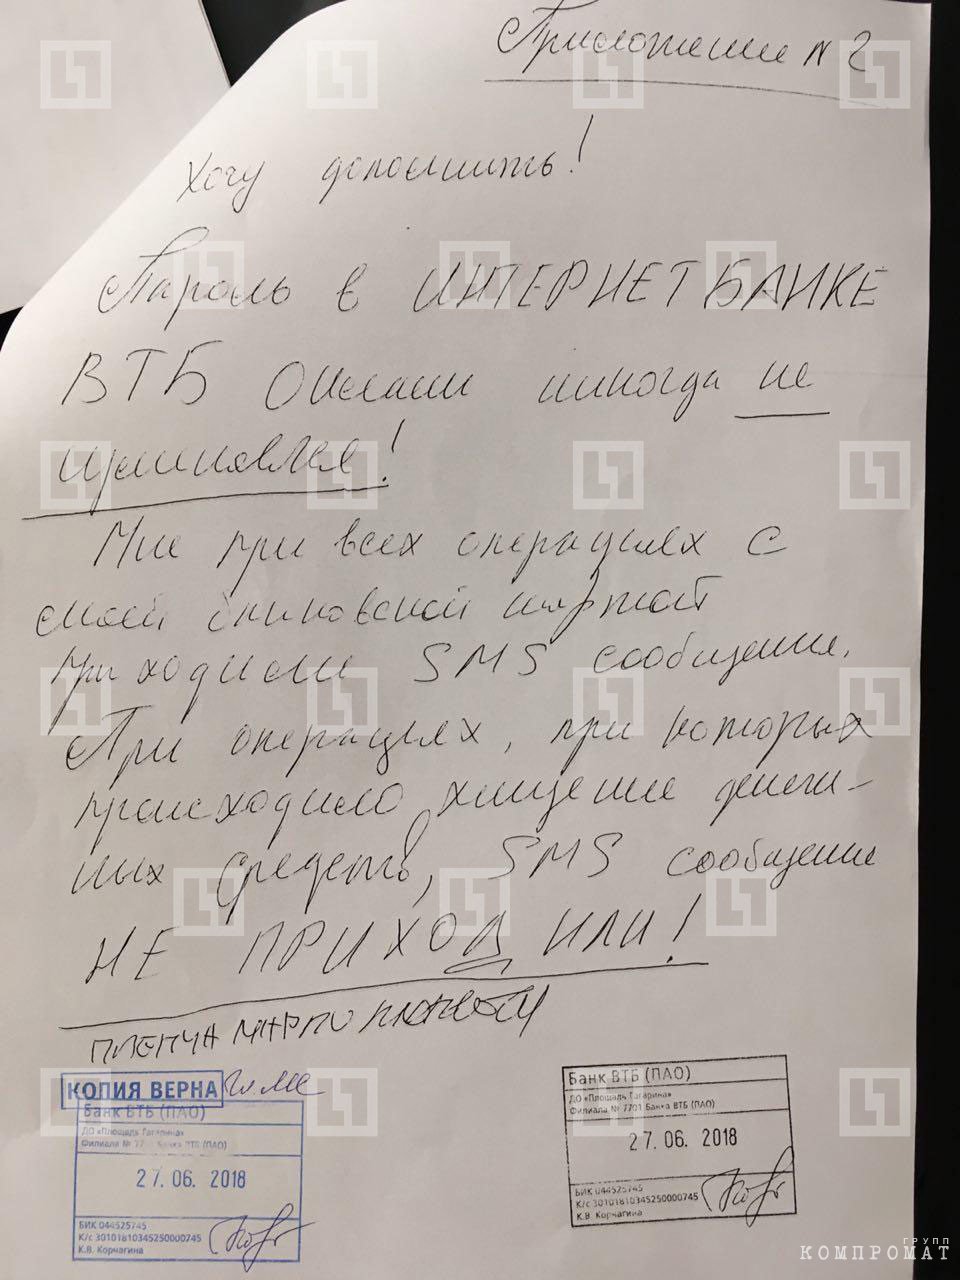 Приложение N 2
Хочу дополнить!
Пароль в ИНТЕРНЕТ БАНКЕ
ВТБ Онлайн никогда не
применялся!
Мне при всех операциях с
моей банковской картой
приходили SMS сообщения.
При операциях, при которых
происходило хищение денеж-
ных средств, SMS сообщение
НЕ ПРИХОДИЛИ!
КОПИЯ ВЕРНА
Банк ВТБ (ПАО)
ДО «Площадь Гагарина»
Филиала № 77 Банка ВТБ (ПАО)
27.06. 2018
БИК 044525745
К/с 30101810345250000745
К.В. Корчагина
Банк ВТБ (ПАО)
ДО «Площадь Гагарина»
Филиала № 7701 Банка ВТБ (ПАО)
27.06. 2018
БИК 044525745
К/с 30101810345250000745
К.В. Корчагина
ГРУПП
КОМПРОМАТ